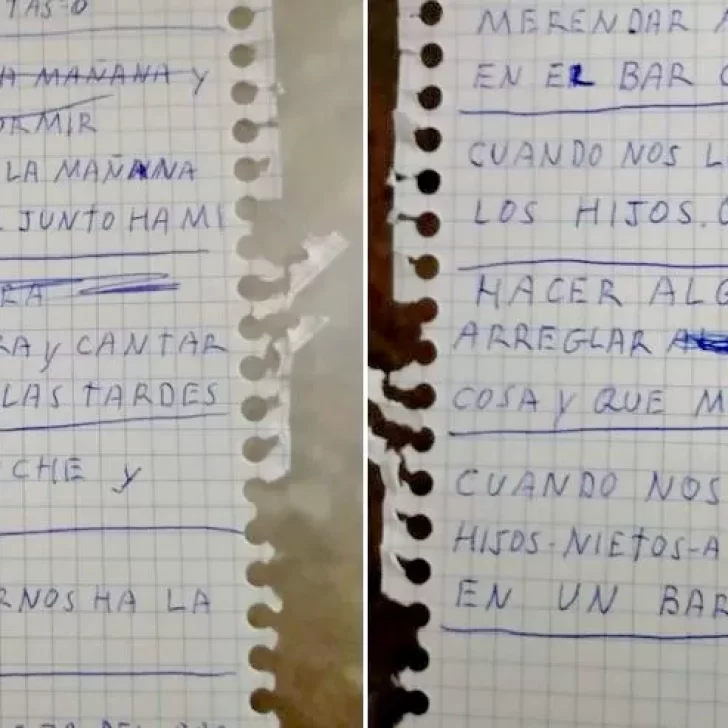 TAS-O
A MAÑANA Y
ORMIR
LA MAÑANA
JUNTO HA MI
RA
RA y CANTAR
LAS TARDES
CHE y
RNOS HA LA
MERENDAR
EN EL BAR
CUANDO NOS L
LOS HIJOS.
HACER ALG
ARREGLAR
COSA Y QUE M
CUANDO NOS
HIJOS-NIETOS-A
EN UN BAR